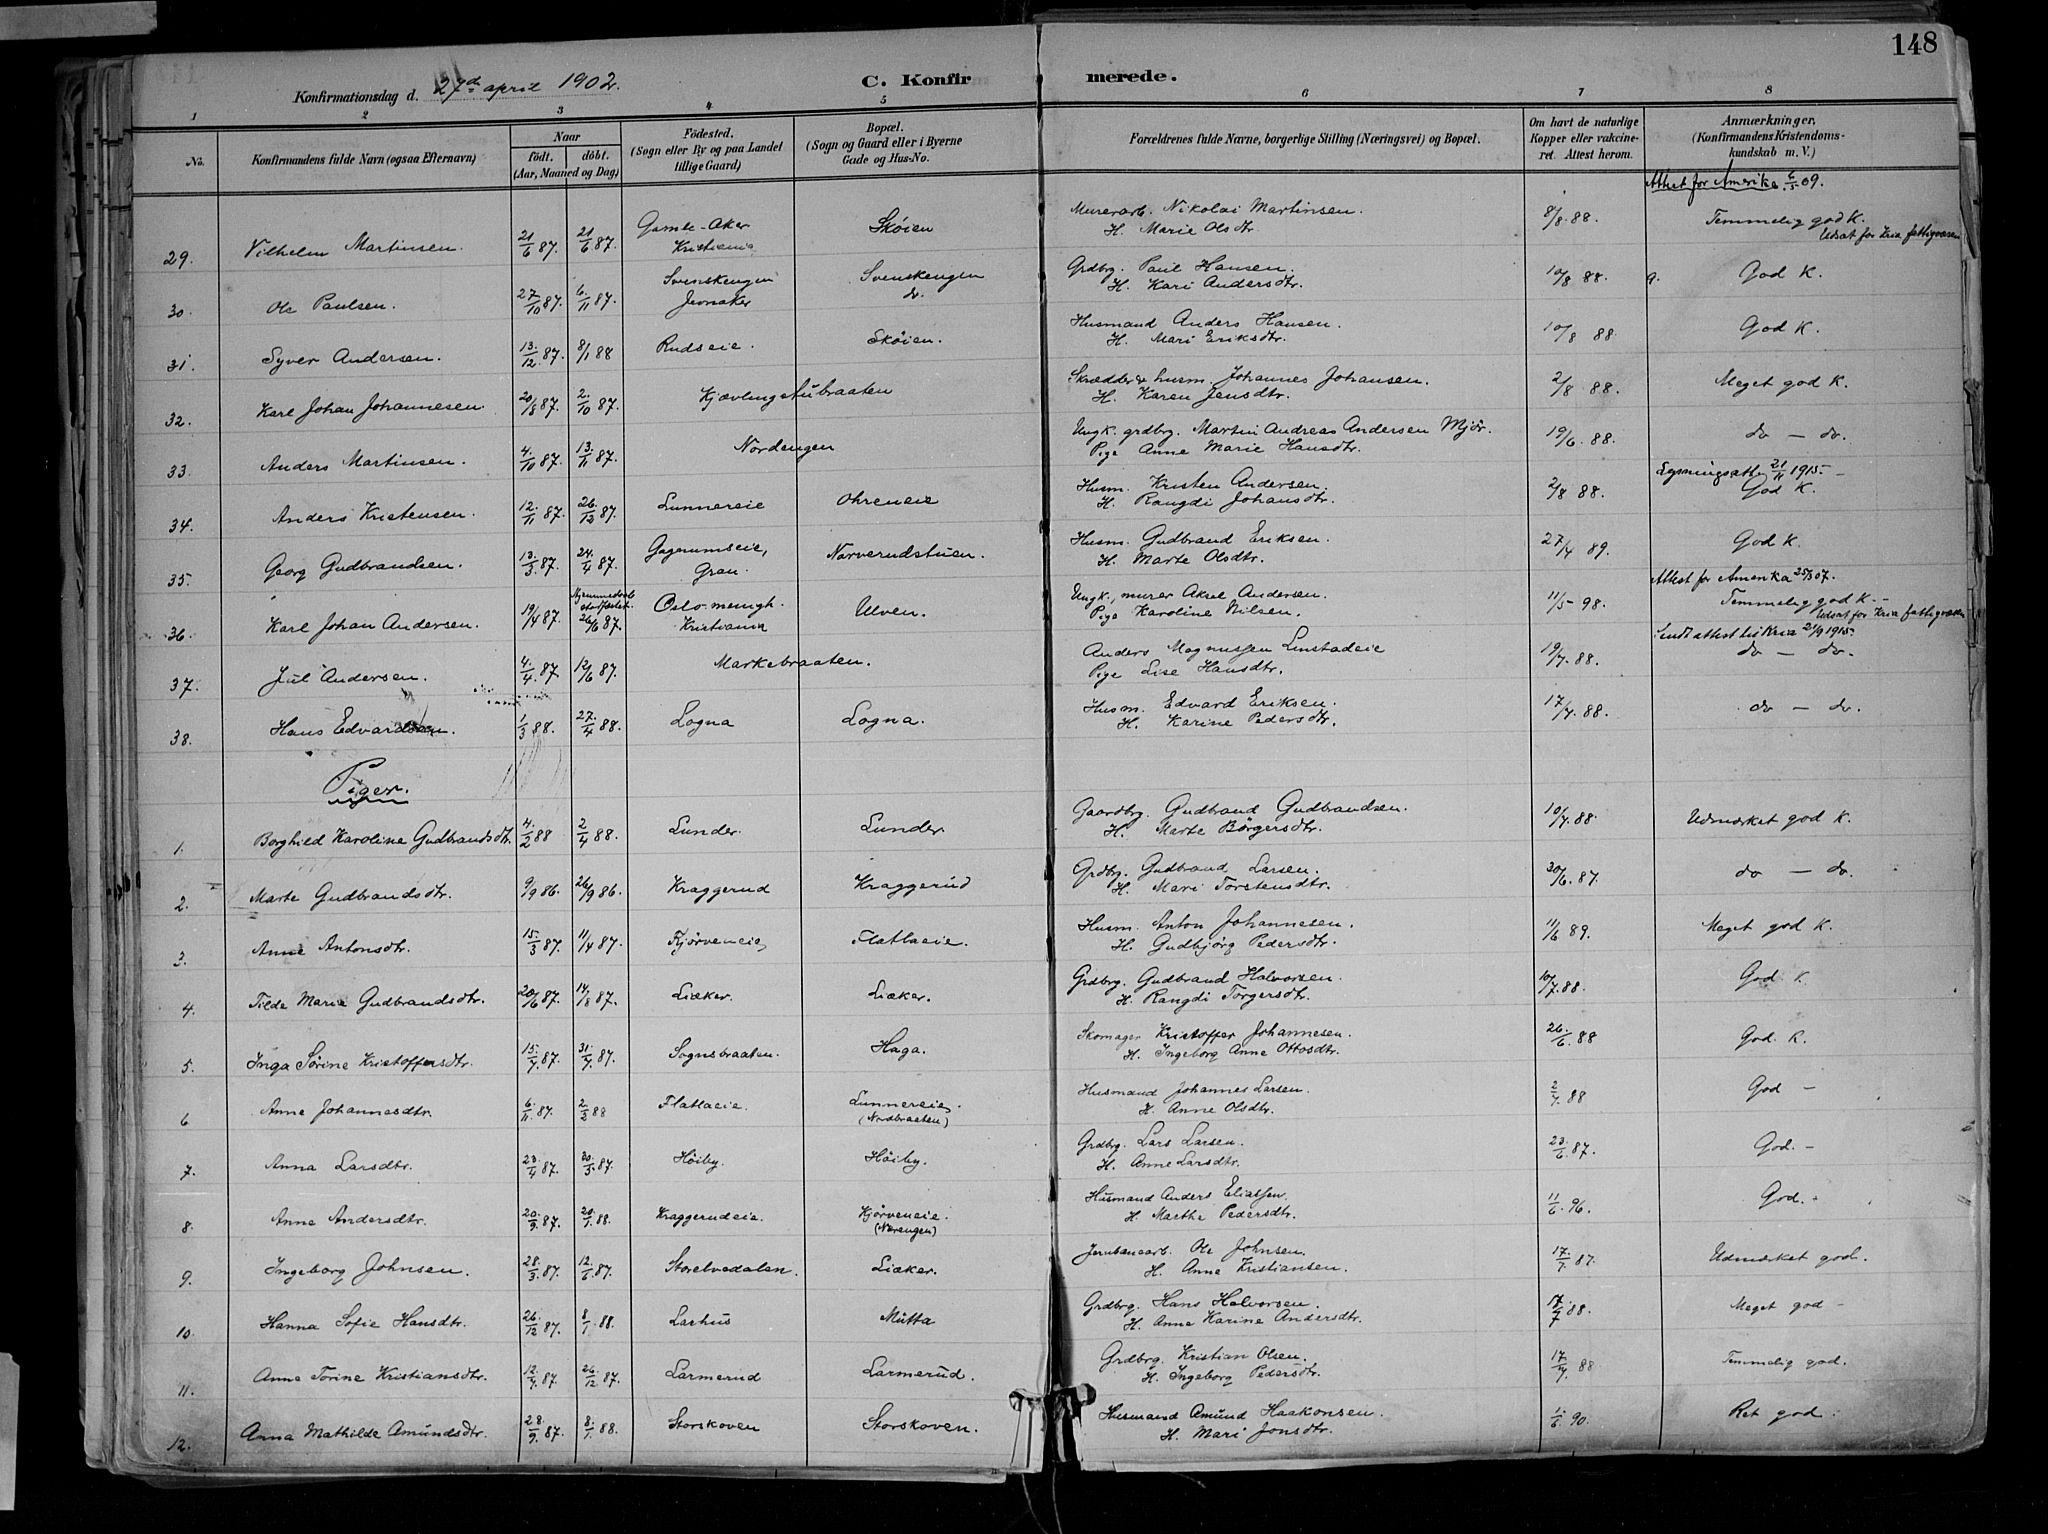 148
Konfirmationsdag d. 27de april 1902.
C. Konfirmerede.
1 2 3 4 5 6 7 8
No. Konfirmandens fulde Navn (ogsaa Efternavn) Naar født. døbt. (Aar, Maaned og Dag) Fødested. (Sogn eller By og paa Landet tillige Gaard) Bopæl. (Sogn og Gaard eller i Byerne Gade og Hus-No. Forældrenes fulde Navne, borgerlige Stilling (Næringsvei) og Bopæl. Om havt de naturlige Kopper eller vakcineret. Attest herom. Anmærkninger. (Konfirmandens Kristendomskundskab m. V.)
Attest for Amerika 6/5 09.
29. Vilhelm Martinsen. 21/6 87. 21/6 87. Gamle-Aker Kristiania Skøien Murerarb. Nikolai Martinsen. 8/8. 88. Temmelig god K.
H. Marie Olsdtr. Udsat for Kria fattigvæsen
30. Ole Paulsen. 27/10 87. 6/11 87. Svenskengen Jevnaker Svenskengen do. Grdbrg. Paul Hansen. 10/8 88. g. God K.
H. Kari Andersdtr.
31. Syver Andersen. 13/12 87. 8/1 88 Rudseie. Skøien. Husmand Anders Hansen. 10/8 88. God K.
H. Mari Eriksdtr.
32. Karl Johan Johannesen. 20/8 87. 2/10 87. Kjævlingstubraaten Skrædder & husm. Johannes Johansen. 2/8 88. Meget god K.
H. Karen Jensdtr.
33. Anders Martinsen. 4/10 87. 13/11 87. Nordengen Ungk. grdbrg. Martin Andreas Andersen Mjør. 19/6. 88. do – do.
Pige Anne Marie Hansdtr.
Lysningsatt. 21/11 1915
34. Anders Kristensen. 12/11 87. 26/12 87. Lunnereie Ohreneie Husm. Kristen Andersen. 2/8 88. God K.
H. Rangdi Johansdtr.
35. Georg Gudbrandsen. 13/3 87. 24/4 87. Gagerumseie, Gran. Narverudstuen. Husm. Gudbrand Eriksen. 27/4 89. God K.
H. Marte Olsdtr.
Attest for Amerika 25/3 07.
36. Karl Johan Andersen. 19/4 87 Hjemmedøbt stadfæstet 26/6 87. Oslo menigh. Kristiania Ulven. Ungk., murer Aksel Andersen. 11/5 98. Temmelig god K.
Pige Karoline Nilsen. Udsat for Kria fattigvæsen
Sendt attest til Kria 21/9 1915.
37. Jul Andersen. 4/4. 87 12/6 87. Markebraaten. Anders Magnussen Linstadeie 19/7. 88. do – do.
Pige Lise Hansdtr.
38. Hans Edvardsen. 1/3 88. 27/4 88. Logna Logna. Husm. Edvard Eriksen. 17/7. 88. do – do.
H. Karine Pedersdtr.
Piger.
1. Borghild Karoline Gudbrandsdtr. 4/2 88 2/4 88. Lunder. Lunder. Gaardbrg. Gudbrand Gudbrandsen. 10/7. 88. Udmærket god K.
H. Marte Børgersdtr.
2. Marte Gudbrandsdtr. 9/9 86. 26/9 86. Kraggerud Kraggerud Grdbrg. Gudbrand Larsen. 30/6. 87. do – do.
H. Mari Torstensdtr.
3. Anne Antonsdtr. 15/3 87. 11/4 87. Kjørveneie, Flatlaeie. Husm. Anton Johannesen. 11/6 89. Meget god K.
H. Gudbjørg Pedersdtr.
4. Tilda Marie Gudbrandsdtr. 20/6 87. 14/8 87. Liæker. Liæker. Grdbrg. Gudbrand Halvorsen. 10/7. 88. God K.
H. Rangdi Torgersdtr.
5. Inga Sørine Kristoffersdtr. 15/7 87. 31/7 87. Sognsbraaten. Haga. Skomager Kristoffer Johannesen. 26/6. 88 God. K.
H. Ingeborg Anne Ottosdtr.
6. Anne Johannesdtr. 6/11 87. 2/2 88 Flatlaeie. Lunnereie. (Nordbraaten) Husmand Johannes Larsen. 2/7 88 God –
H. Anne Olsdtr.
7. Anna Larsdtr. 23/4 87. 30/5 87. Høiby. Høiby. Grdbrg. Lars Larsen. 23/6. 87. God. –
H. Anne Larsdtr.
8. Anne Andersdtr. 20/9. 87. 20/1 88. Kraggerudeie. Kjørveneie. (Nærengen) Husmand Anders Eliassen. 11/6. 96. God. –
H. Marthe Pedersdtr.
9. Ingeborg Johnsen. 28/3. 87. 12/6. 87. Storelvedalen. Liæker. Jernbanearb. Ole Johnsen. 17/7. 87. Udmærket god.
H. Anne Kristiansen.
10. Hanna Sofie Hansdtr. 26/12 87. 8/1 88. Larhus Mutta Grdbrg. Hans Halvorsen. 17/7 88. Meget god –
H. Anne Karine Andersdtr.
11. Anne Torine Kristiansdtr. 12/7. 87. 26/12 87. Larmerud Larmerud. Grdbrg. Kristian Olsen. 17/7 88 Temmelig god.
H. Ingeborg Pedersdtr.
12. Anna Mathilde Amundsdtr. 28/9. 87. 8/1 88. Storskoven Storskoven. Husmand Amund Haakonsen. 1/6. 90. Ret god.
H. Mari Jonsdtr.